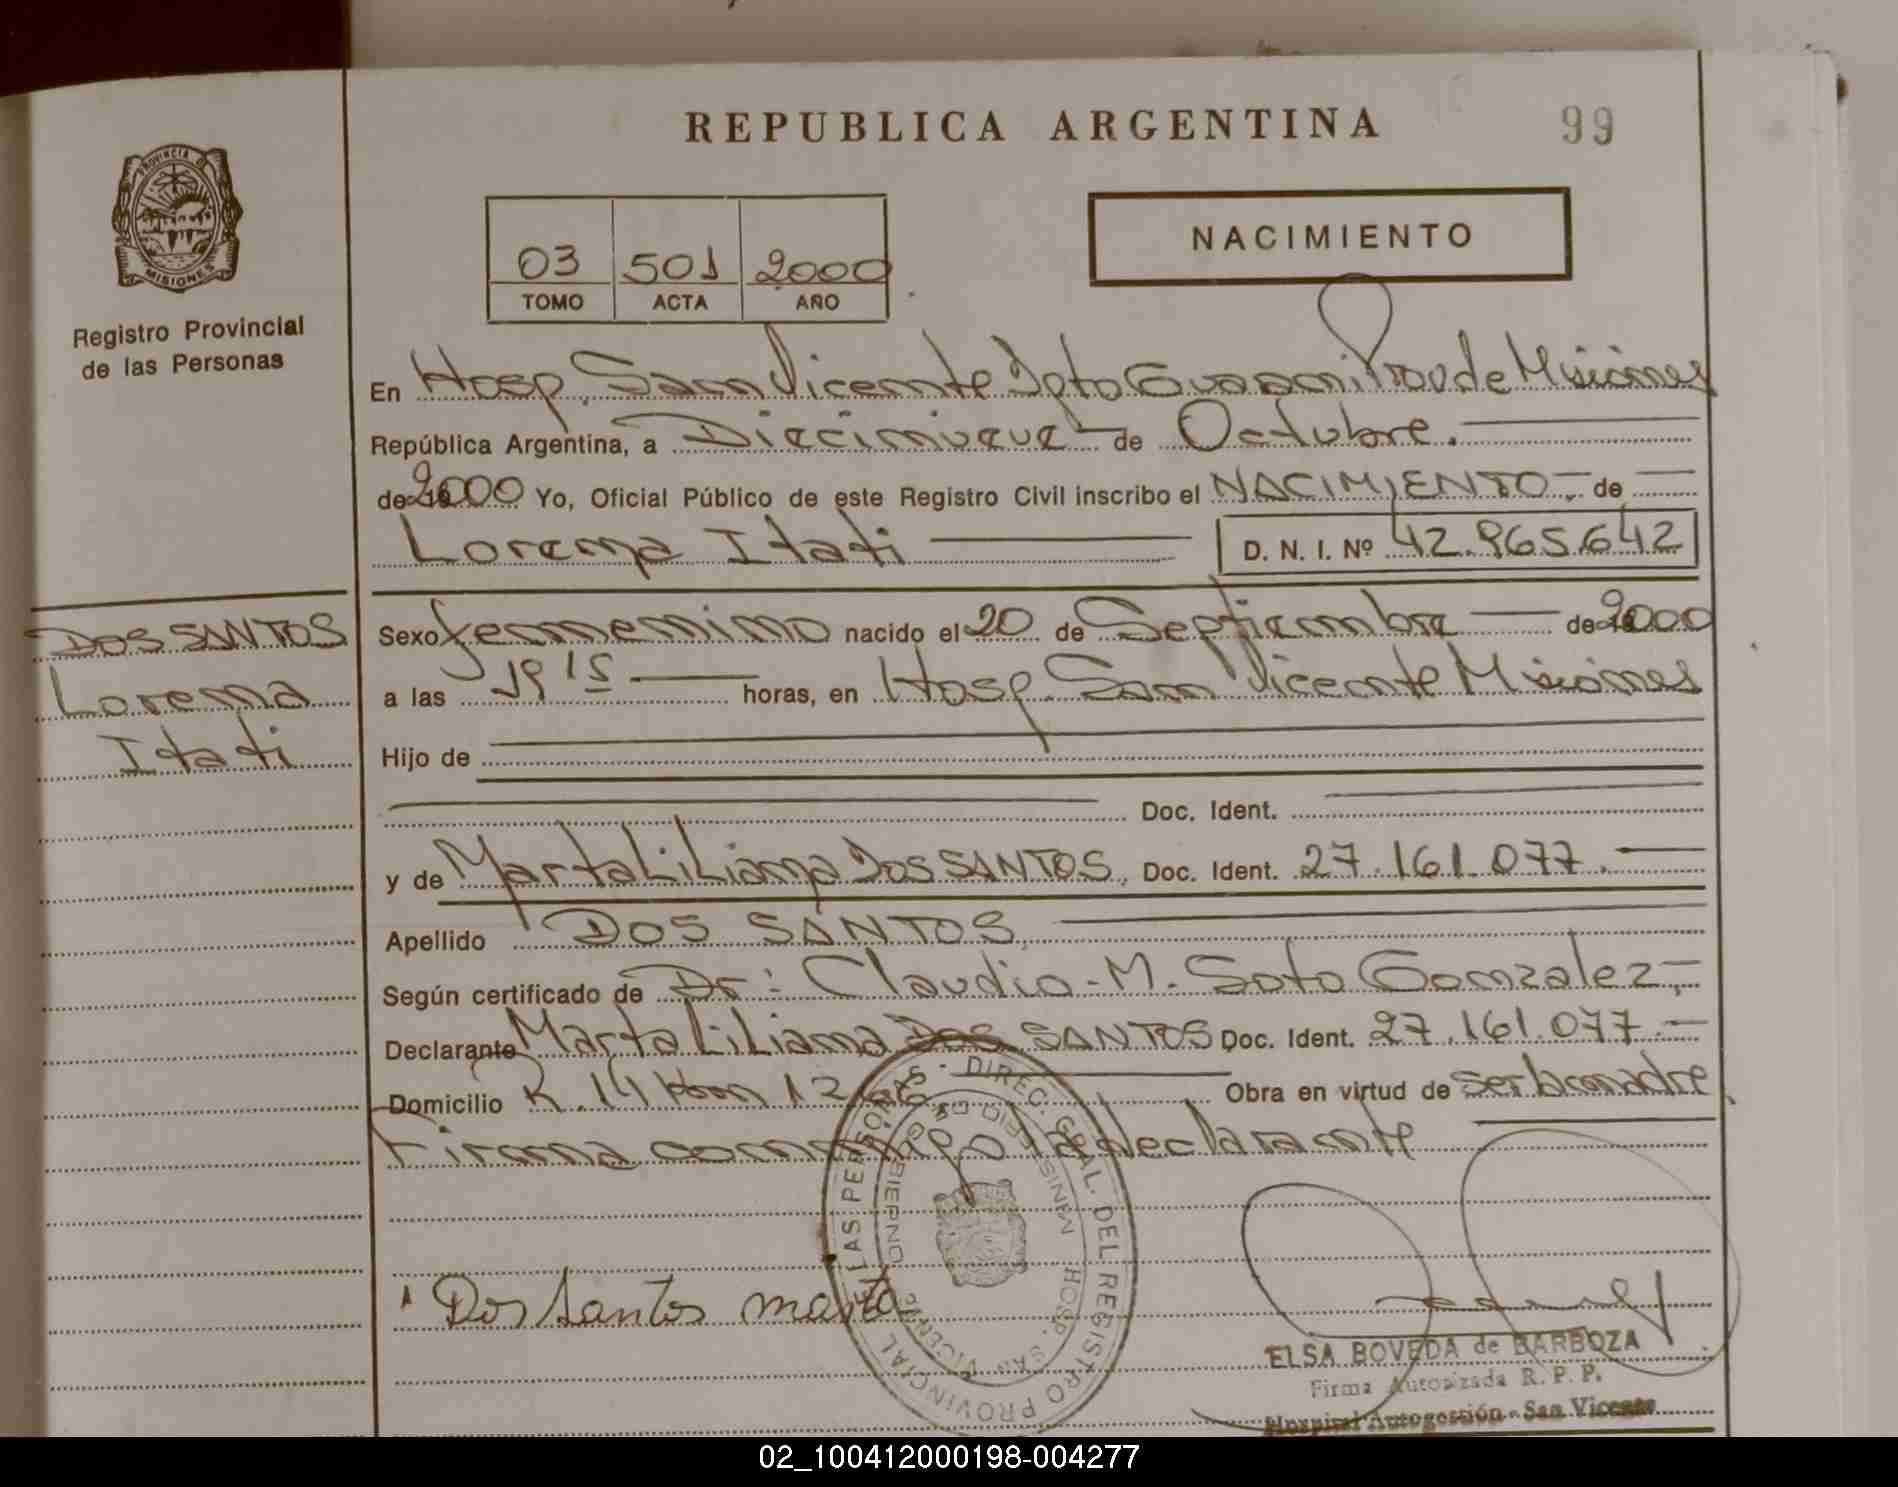 REPUBLICA ARGENTINA
99
PROVINCIA D
MISIONES
Registro Provincial
de las Personas
03 501 2000
TOMO ACTA AÑO
NACIMIENTO
En Hosp. San Vicente Dpto Guarani Prov de Misiones
República Argentina, a Diecinueve de Octubre.
de 2000 Yo, Oficial Público de este Registro Civil inscribo el NACIMIENTO de
Lorena Itati D. N. I. Nº 42.965.642
DOS SANTOS
Lorena
Itati
Sexo femenino nacido el 20 de Septiembre de 2000
a las 19 15 horas, en Hosp. San Vicente Misiones
Hijo de
Doc. Ident.
y de Marta Liliana Dos SANTOS, Doc. Ident. 27.161.077.
Apellido DOS SANTOS,
Según certificado de Dr: Claudio M. Soto Gonzalez,
Declarante Marta Liliana Dos SANTOS Doc. Ident. 27.161.077.
Domicilio R. 14 Km 12 Obra en virtud de ser la madre
Firma conmigo la declarante
DIREC. GRAL. DEL REGISTRO PROVINCIAL DE LAS PERSONAS
HOSP. SAN VICENTE
Dos Santos marta
ELSA BOVEDA de BARBOZA
Firma Autorizada R. P. P.
Hospital Autogestión - San Vicente
02_100412000198-004277